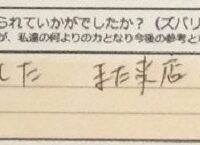 られていかがでしたか？（ズバリ
が、私達の何よりの力となり今後の参考と
した　また来店